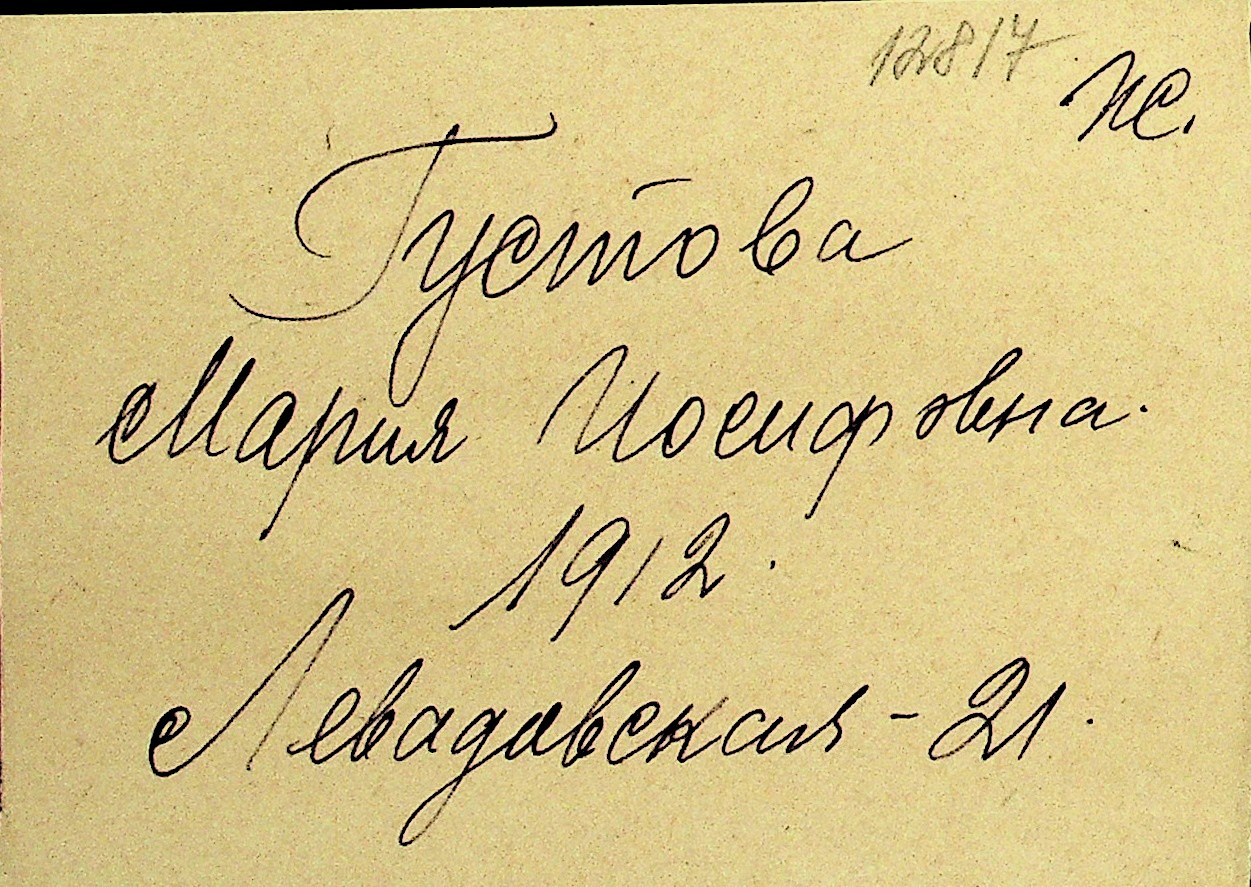 12817
ж.
Густова
Мария Иосифовна.
1912.
Левадовская - 21.